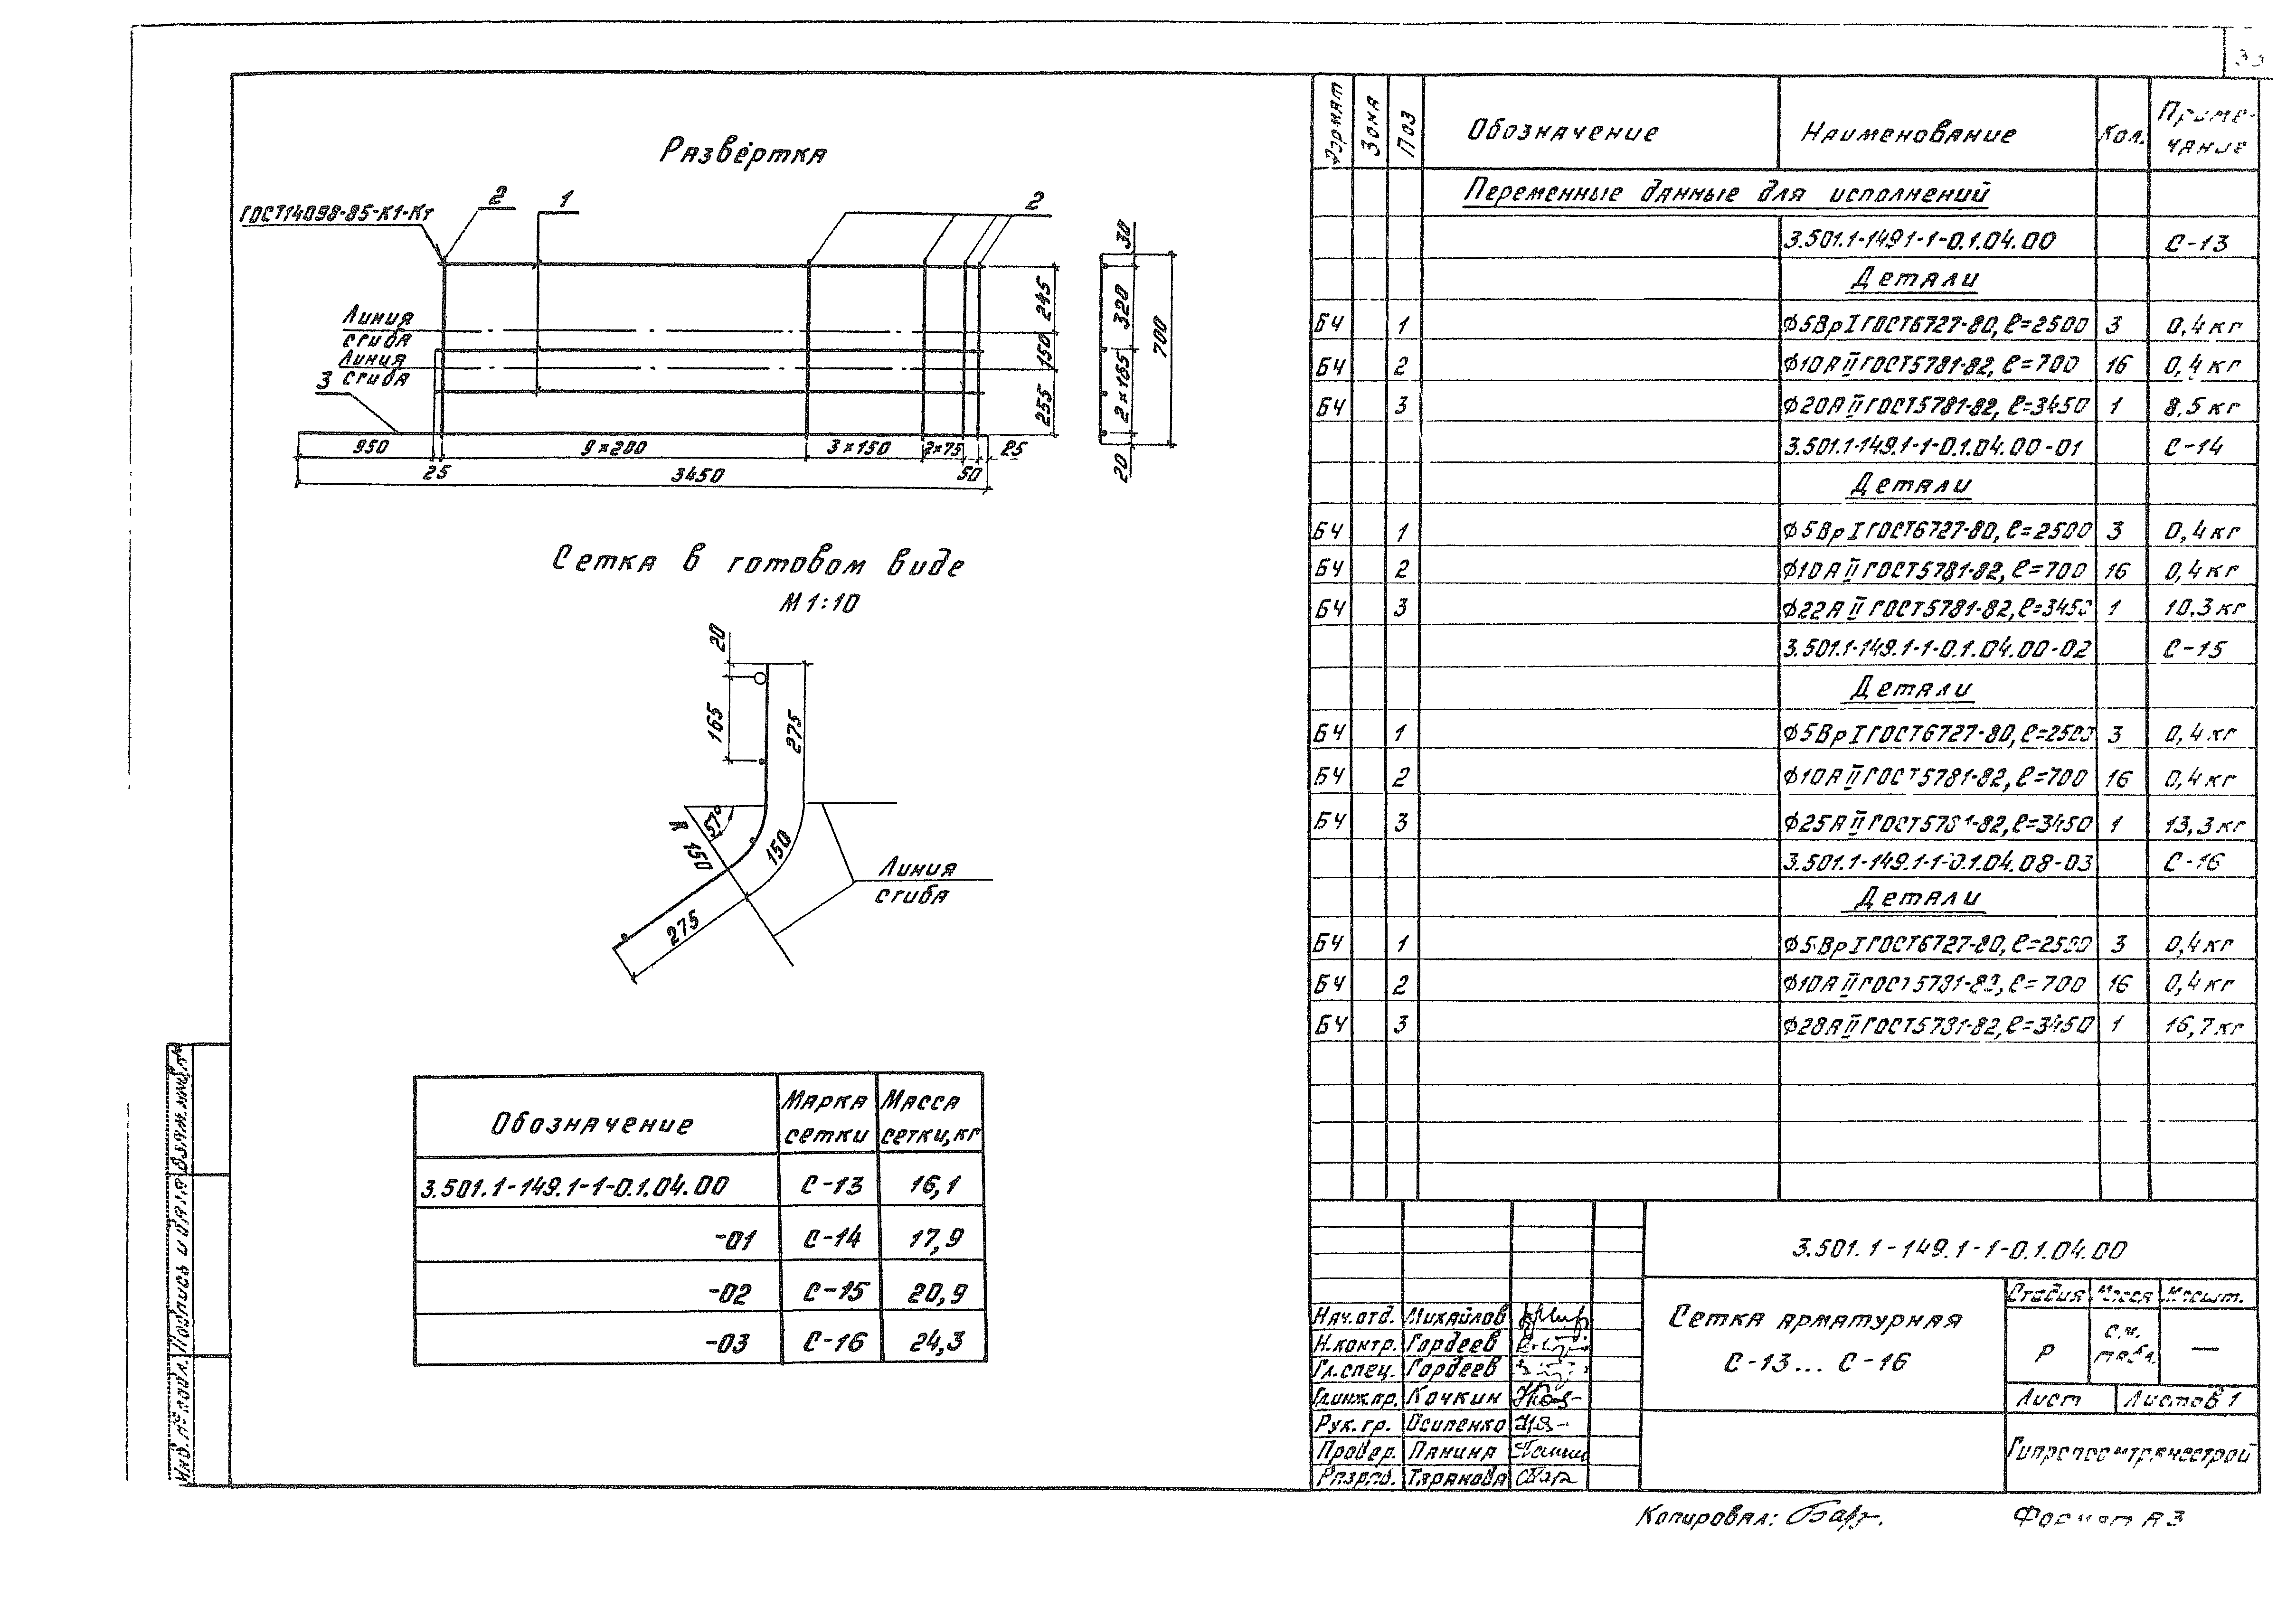 Развёртка
ГОСТ14098-85-К1-Кт
2
1
2
Линия
сгиба
Линия
сгиба
3
245
150
255
30
320
2×165
700
20
950
9×200
3×150
2×75
25
25
3450
50
Сетка в готовом виде
М 1:10
20
165
275
57°
R 150
150
275
Линия
сгиба
Обозначение
Марка сетки
Масса сетки, кг
3.501.1-149.1-1-0.1.04.00 С-13 16,1
-01 С-14 17,9
-02 С-15 20,9
-03 С-16 24,3
Формат Зона Поз Обозначение Наименование Кол. Приме-
чание
Переменные данные для исполнений
3.501.1-149.1-1-0.1.04.00 С-13
Детали
БЧ 1 Ф5ВрI ГОСТ6727-80, ℓ=2500 3 0,4 кг
БЧ 2 Ф10АII ГОСТ5781-82, ℓ=700 16 0,4 кг
БЧ 3 Ф20АII ГОСТ5781-82, ℓ=3450 1 8,5 кг
3.501.1-149.1-1-0.1.04.00-01 С-14
Детали
БЧ 1 Ф5ВрI ГОСТ6727-80, ℓ=2500 3 0,4 кг
БЧ 2 Ф10АII ГОСТ5781-82, ℓ=700 16 0,4 кг
БЧ 3 Ф22АII ГОСТ5781-82, ℓ=3450 1 10,3 кг
3.501.1-149.1-1-0.1.04.00-02 С-15
Детали
БЧ 1 Ф5ВрI ГОСТ6727-80, ℓ=2500 3 0,4 кг
БЧ 2 Ф10АII ГОСТ5781-82, ℓ=700 16 0,4 кг
БЧ 3 Ф25АII ГОСТ5781-82, ℓ=3450 1 13,3 кг
3.501.1-149.1-1-0.1.04.08-03 С-16
Детали
БЧ 1 Ф5ВрI ГОСТ6727-80, ℓ=2500 3 0,4 кг
БЧ 2 Ф10АII ГОСТ5781-82, ℓ=700 16 0,4 кг
БЧ 3 Ф28АII ГОСТ5781-82, ℓ=3450 1 16,7 кг
3.501.1-149.1-1-0.1.04.00
Сетка арматурная
С-13... С-16
Стадия Масса Масшт.
Р см. табл. —
Лист Листов 1
Гипропромтрансстрой
Нач.отд. Михайлов
Н.контр. Гордеев
Гл.спец. Гордеев
Гл.инж.пр. Кочкин
Рук. гр. Осипенко
Провер. Панина
Разраб. Таранова
Инв. № подл. Подпись и дата Взам. инв. №
Копировал:
Формат А3